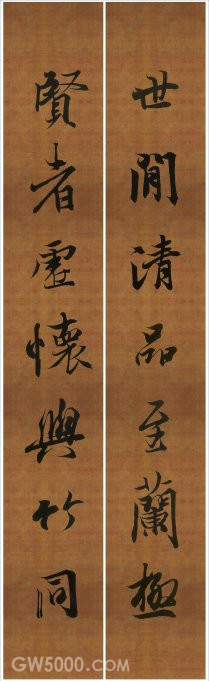 世間清品至蘭極
賢者虛懷與竹同
GW5000.com